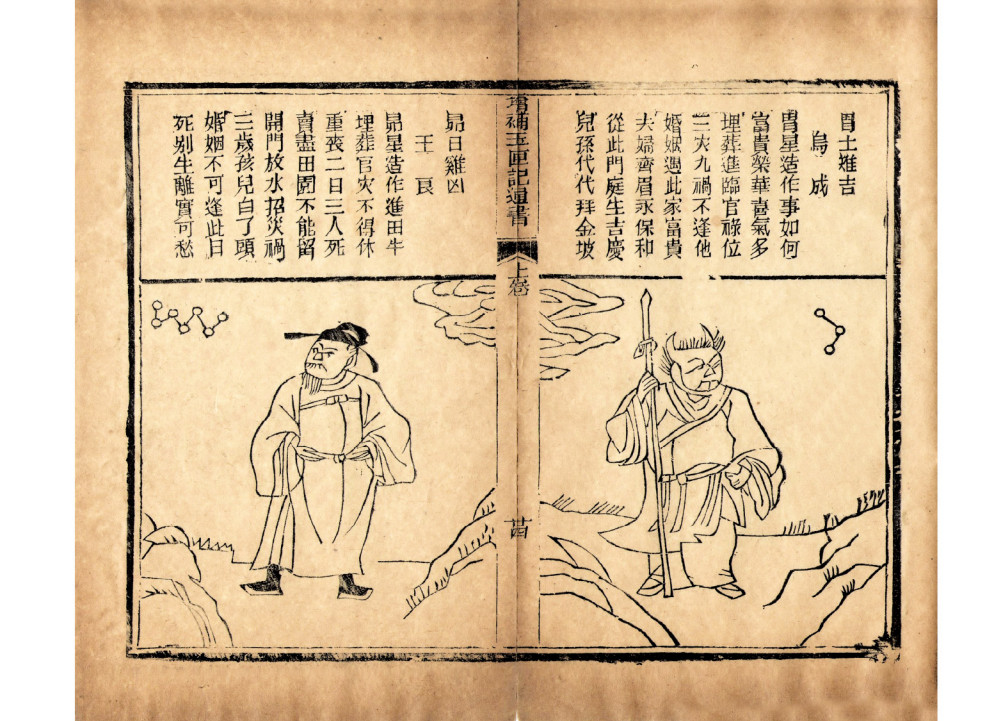 胃土雉吉
烏成
胃星造作事如何
富貴榮華喜氣多
埋葬進臨官祿位
三灾九禍不逢他
婚姻遇此家富貴
夫婦齊眉永保和
從此門庭生吉慶
兒孫代代拜金坡
增補玉匣記通書
上卷
廿四
昴日雞凶
王良
昴星造作進田牛
埋葬官灾不得休
重喪二日三人死
賣盡田園不能留
開門放水招災禍
三歲孩兒白了頭
婚姻不可逢此日
死別生離實可愁